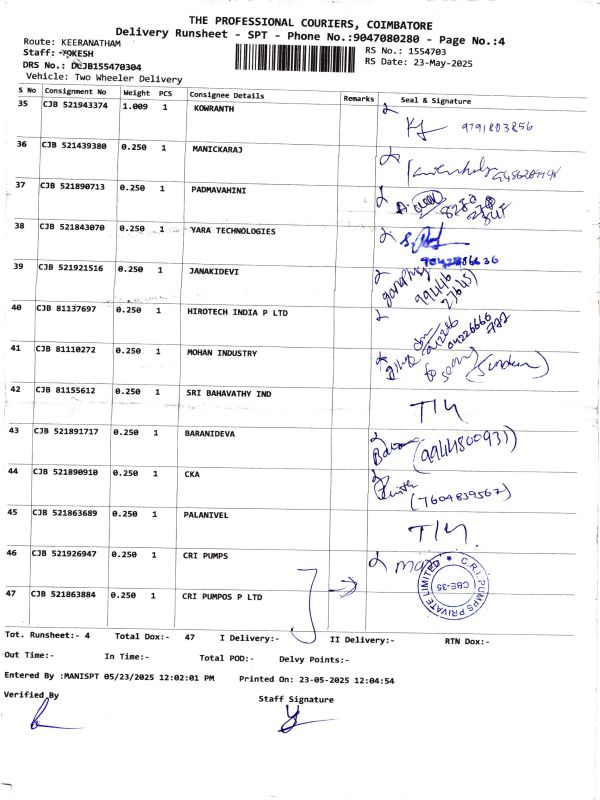 THE PROFESSIONAL COURIERS, COIMBATORE
Delivery Runsheet - SPT - Phone No.:9047080280 - Page No.:4
Route: KEERANATHAM
RS No.: 1554703
Staff: YOKESH
RS Date: 23-May-2025
DRS No.: DCJB155470304
Vehicle: Two Wheeler Delivery
S No Consignment No Weight PCS Consignee Details Remarks Seal & Signature
35 CJB 521943374 1.009 1 KOWRANTH 9791803856
36 CJB 521439380 0.250 1 MANICKARAJ
37 CJB 521890713 0.250 1 PADMAVAHINI
38 CJB 521843070 0.250 1 YARA TECHNOLOGIES
39 CJB 521921516 0.250 1 JANAKIDEVI
40 CJB 81137697 0.250 1 HIROTECH INDIA P LTD
41 CJB 81110272 0.250 1 MOHAN INDUSTRY
42 CJB 81155612 0.250 1 SRI BAHAVATHY IND
43 CJB 521891717 0.250 1 BARANIDEVA (9944800931)
44 CJB 521890910 0.250 1 CKA (7604839567)
45 CJB 521863689 0.250 1 PALANIVEL
46 CJB 521926947 0.250 1 CRI PUMPS
C.R.I. PUMPS PRIVATE LIMITED
CBE-35
47 CJB 521863884 0.250 1 CRI PUMPOS P LTD
Tot. Runsheet:- 4 Total Dox:- 47 I Delivery:- II Delivery:- RTN Dox:-
Out Time:- In Time:- Total POD:- Delvy Points:-
Entered By :MANISPT 05/23/2025 12:02:01 PM Printed On: 23-05-2025 12:04:54
Verified By
Staff Signature